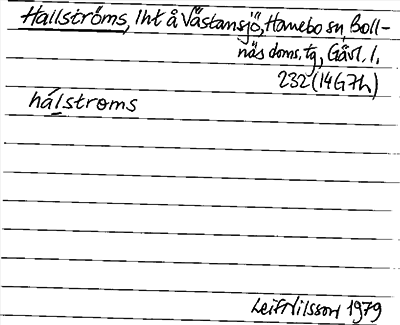 Hallströms, lht å Västansjö, Hanebo sn, Boll-
näs doms. tg, Gävl. l.
232 (14G7h)
hálstroms
Leif Nilsson 1979